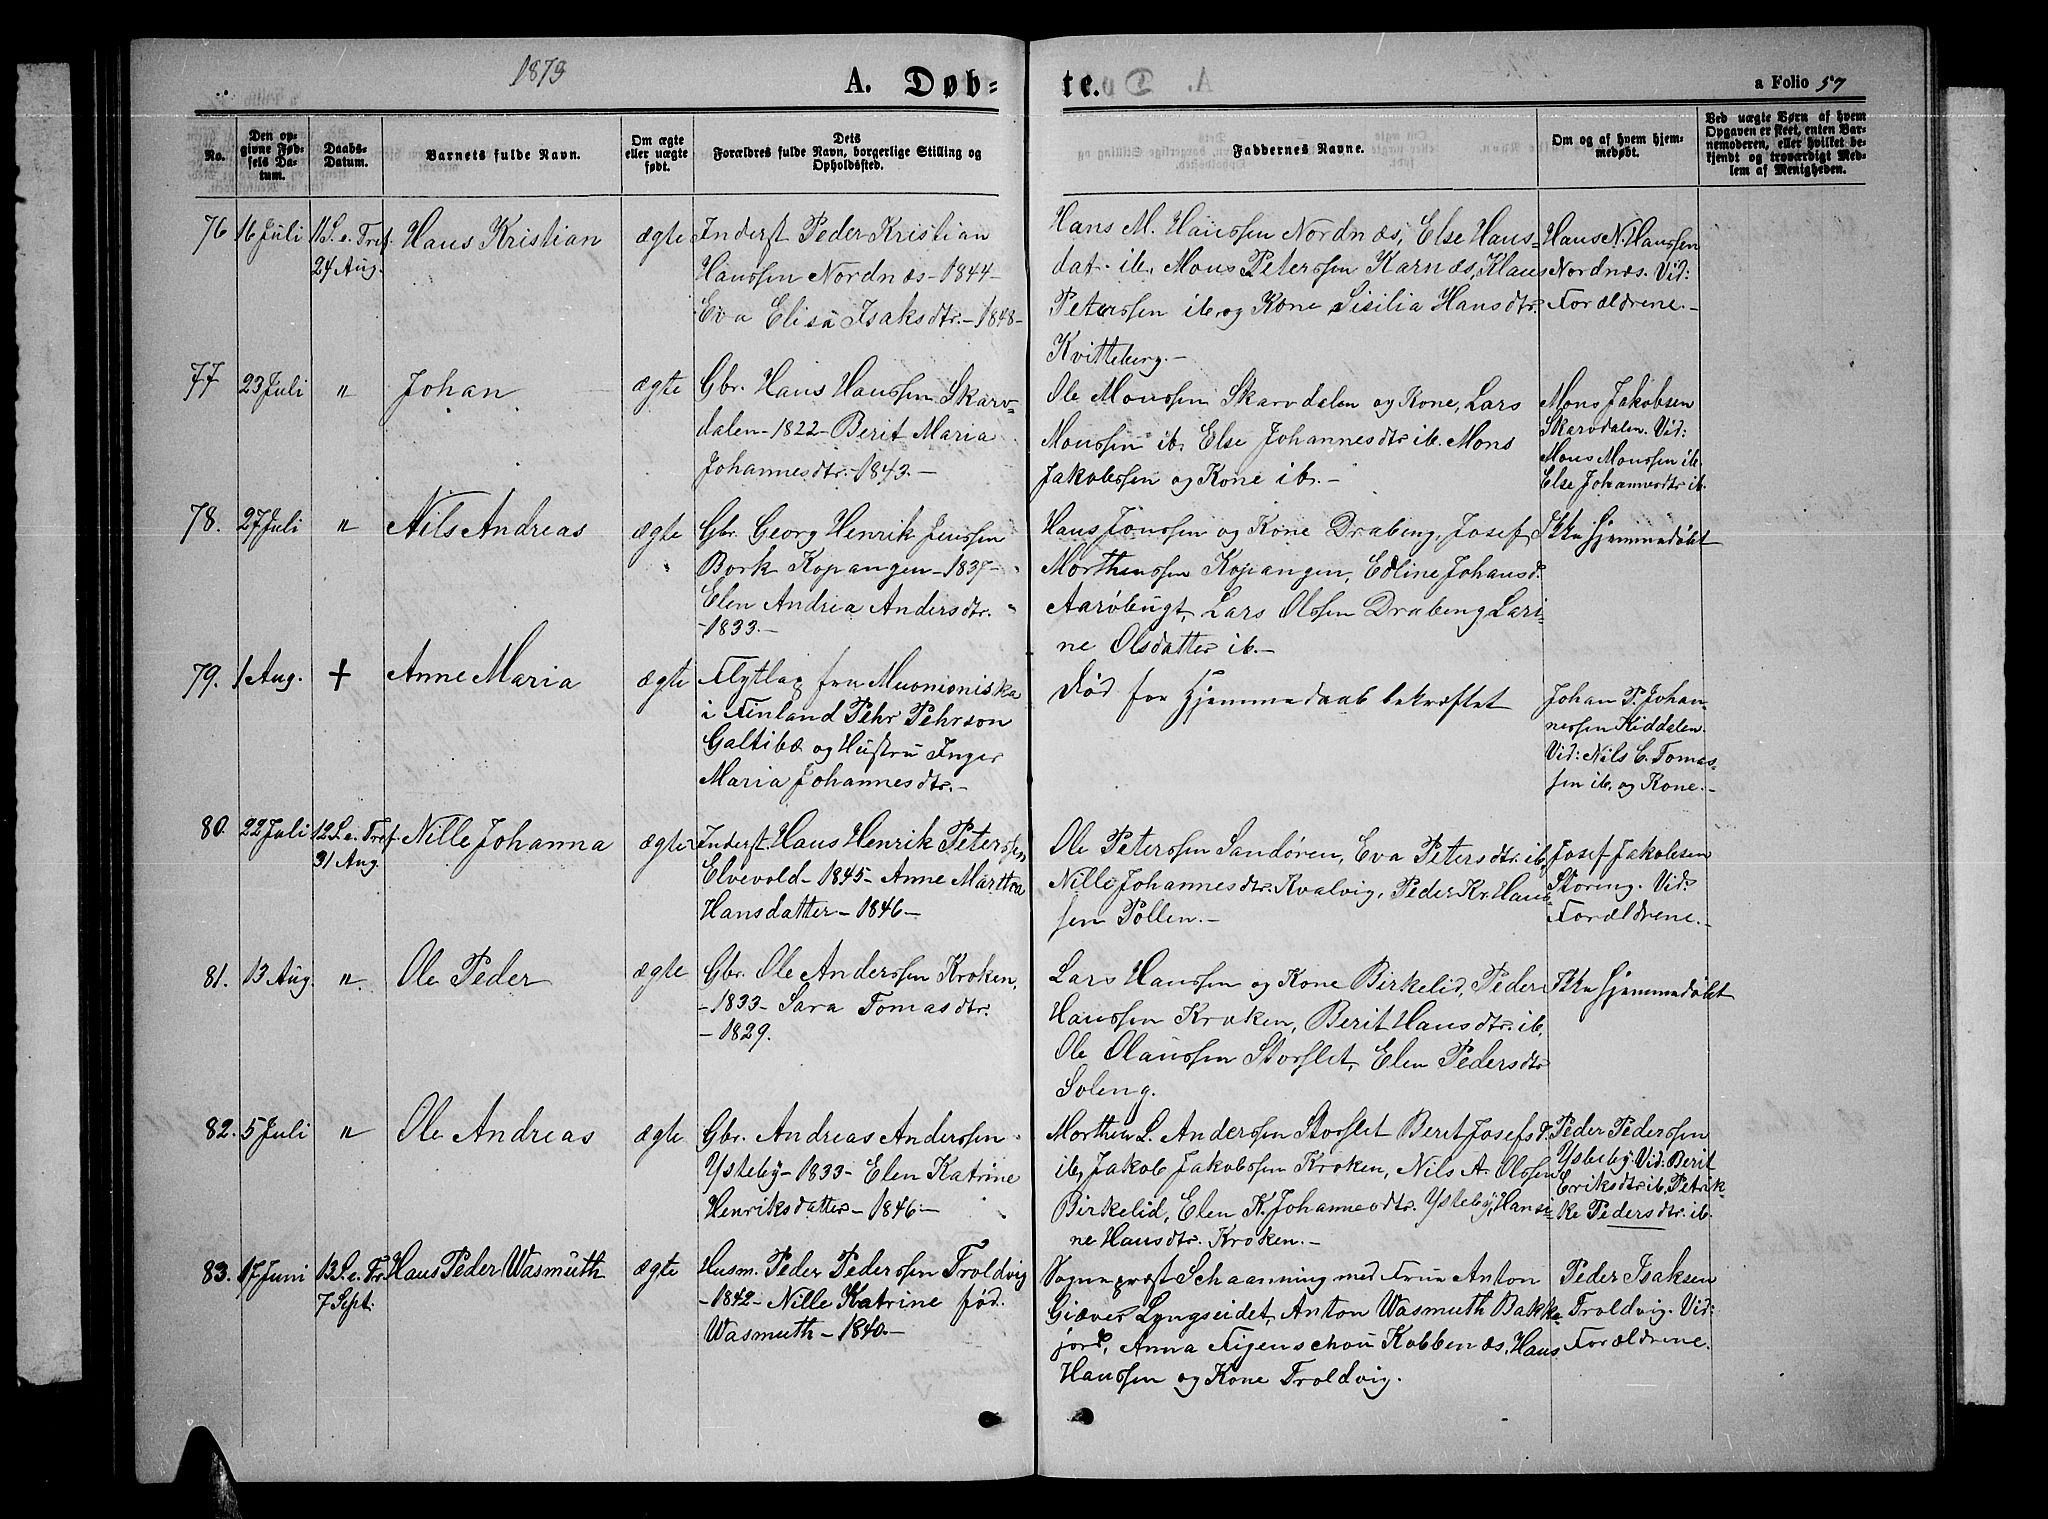 1873
A. Døb-
te.
a Folio 57
No.
Den op-
givne Fød-
sels Da-
tum.
Daabs-
Datum.
Barnets fulde Navn.
Om ægte
eller uægte
født.
Dets
Forældres fulde Navn, borgerlige Stilling og
Opholdssted.
Faddernes Navne.
Om og af hvem hjem-
medøbt.
Ved uægte Børn af hvem
Opgaven er skeet, enten Bar-
nemoderen, eller hvilket be-
kjendt og troværdigt Med-
lem af Menigheden.
76 16 Juli 11 S. e. Tref. Hans Kristian ægte Inderst Peder Kristian
24 Aug. Hanssen Nordnæs - 1844 -
Eva Elisa Isaksdtr. - 1848 -
Hans M. Hanssen Nordnæs, Else Hans-
dat. ib., Mons Peterssen Karnæs, Klaus
Peterssen ib. og Kone Sisilia Hansdtr.
Kvitteberg. -
Hans N. Hanssen
Nordnæs. Vid:
Forældrene. -
77 23 Juli " Johan ægte Gbr. Hans Hanssen Skarv-
dalen - 1822 - Berit Maria
Johannesdtr. - 1843. -
Ole Monssen Skarvdalen og Kone, Lars
Monssen ib. Else Johannesdtr ib. Mons
Jakobssen og Kone ib. -
Mons Jakobsen
Skarvdalen. Vid:
Mons Monssen ib.
Else Johannesdtr ib.
78. 27 Juli " Nils Andreas ægte Gbr. Georg Henrik Jenssen
Bork Kopangen - 1837 -
Elen Andrea Andersdtr.
- 1833. -
Hans Jonssen og Kone Drabeng, Josef
Morthenssen Kopangen, Edline Johansd.
Aarøbugt, Lars Olssen Drabeng Lari-
ne Olsdatter ib. -
Ikke hjemmedøbt
79. 1 Aug. + Anne Maria ægte Flytlap fra Muonioniska
i Finland Pehr Pehrson
Galtibæ og Hustru Inger
Maria Johannesdtr. -
Død før Hjemmedaab bekræftet
Johan P. Johan-
nessen Kiddalen.
Vid: Nils C. Tomas-
sen ib. og Kone. -
80. 22 Juli 12 S. e. Tref. Nille Johanna ægte Inderst Hans Henrik Peterssen
31 Aug Elvevold - 1845 - Anne Martha
Hansdatter - 1846 -
Ole Peterssen Sandøren, Eva Petersdtr. ib,
Nille Johannesdtr. Kvalvig, Peder Kr. Hans-
sen Pollen. -
Josef Jakobsen
Storeng. Vid:
Forældrene. -
81. 13 Aug. " Ole Peder ægte Gbr. Ole Anderssen Kroken.
- 1833 - Sara Tomasdtr.
- 1829.
Lars Hanssen og Kone Birkelid, Peder
Hanssen Kroken, Berit Hansdtr. ib,
Ole Olaussen Storslet, Elen Pedersdtr
Soleng.
Ikke hjemmedøbt
82. 5 Juli " Ole Andreas ægte Gbr. Andreas Anderssen
Ysteby - 1833 - Elen Katrine
Henriksdatter - 1846 -
Morthen L. Anderssen Storslet Berit Josefsd.
ib, Jakob Jakobssen Kroken, Nils A. Olssen
Birkelid, Elen K. Johannesdtr. Ysteby, Hansi-
ne Hansdtr. Kroken. -
Peder Pederssen
Ysteby. Vid: Berit
Eriksdtr ib, Petrik-
ke Pedersdtr. ib.
83. 17 Juni 13 S. e. Tr. Hans Peder Wasmuth ægte Husm. Peder Pederssen Troldvig
7 Sept. - 1842 - Nille Katrine fød.
Wasmuth - 1840. -
Sognepræst Schaanning med Frue Anton
Giæver Lyngseidet, Anton Wasmuth Bakke-
jord, Anna Figenschou Kobbenæs, Hans
Hanssen og Kone Troldvig.
Peder Isaksen
Troldvig. Vid:
Forældrene.